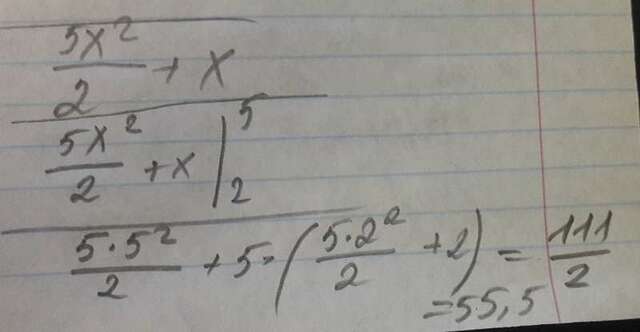 5x²/2 + x
5x²/2 + x |₂⁵
5·5²/2 + 5 - (5·2²/2 + 2) = 111/2
= 55,5